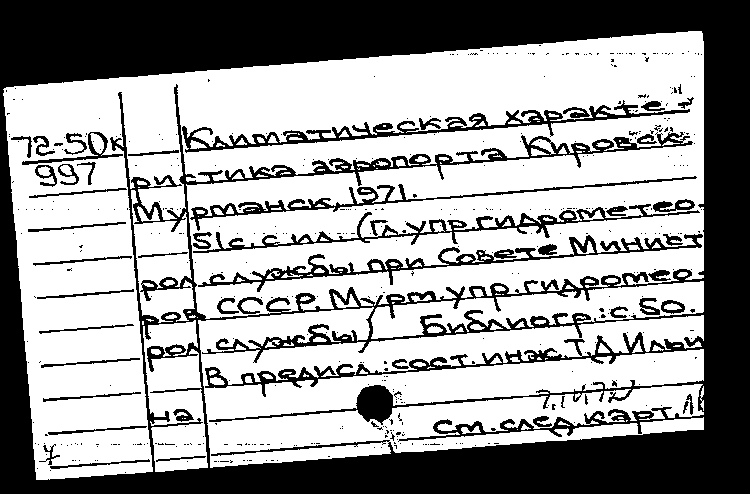 72-50к
997
Климатическая характе-
ристика аэропорта Кировск.
Мурманск, 1971.
51с. с ил. (Гл. упр. гидрометео-
рол. службы при Совете Минист
ров СССР. Мурм. упр. гидромео-
рол. службы) Библиогр.: с. 50.
В предисл.: сост. инж. Т.Д. Ильи
на.
См. след. карт.